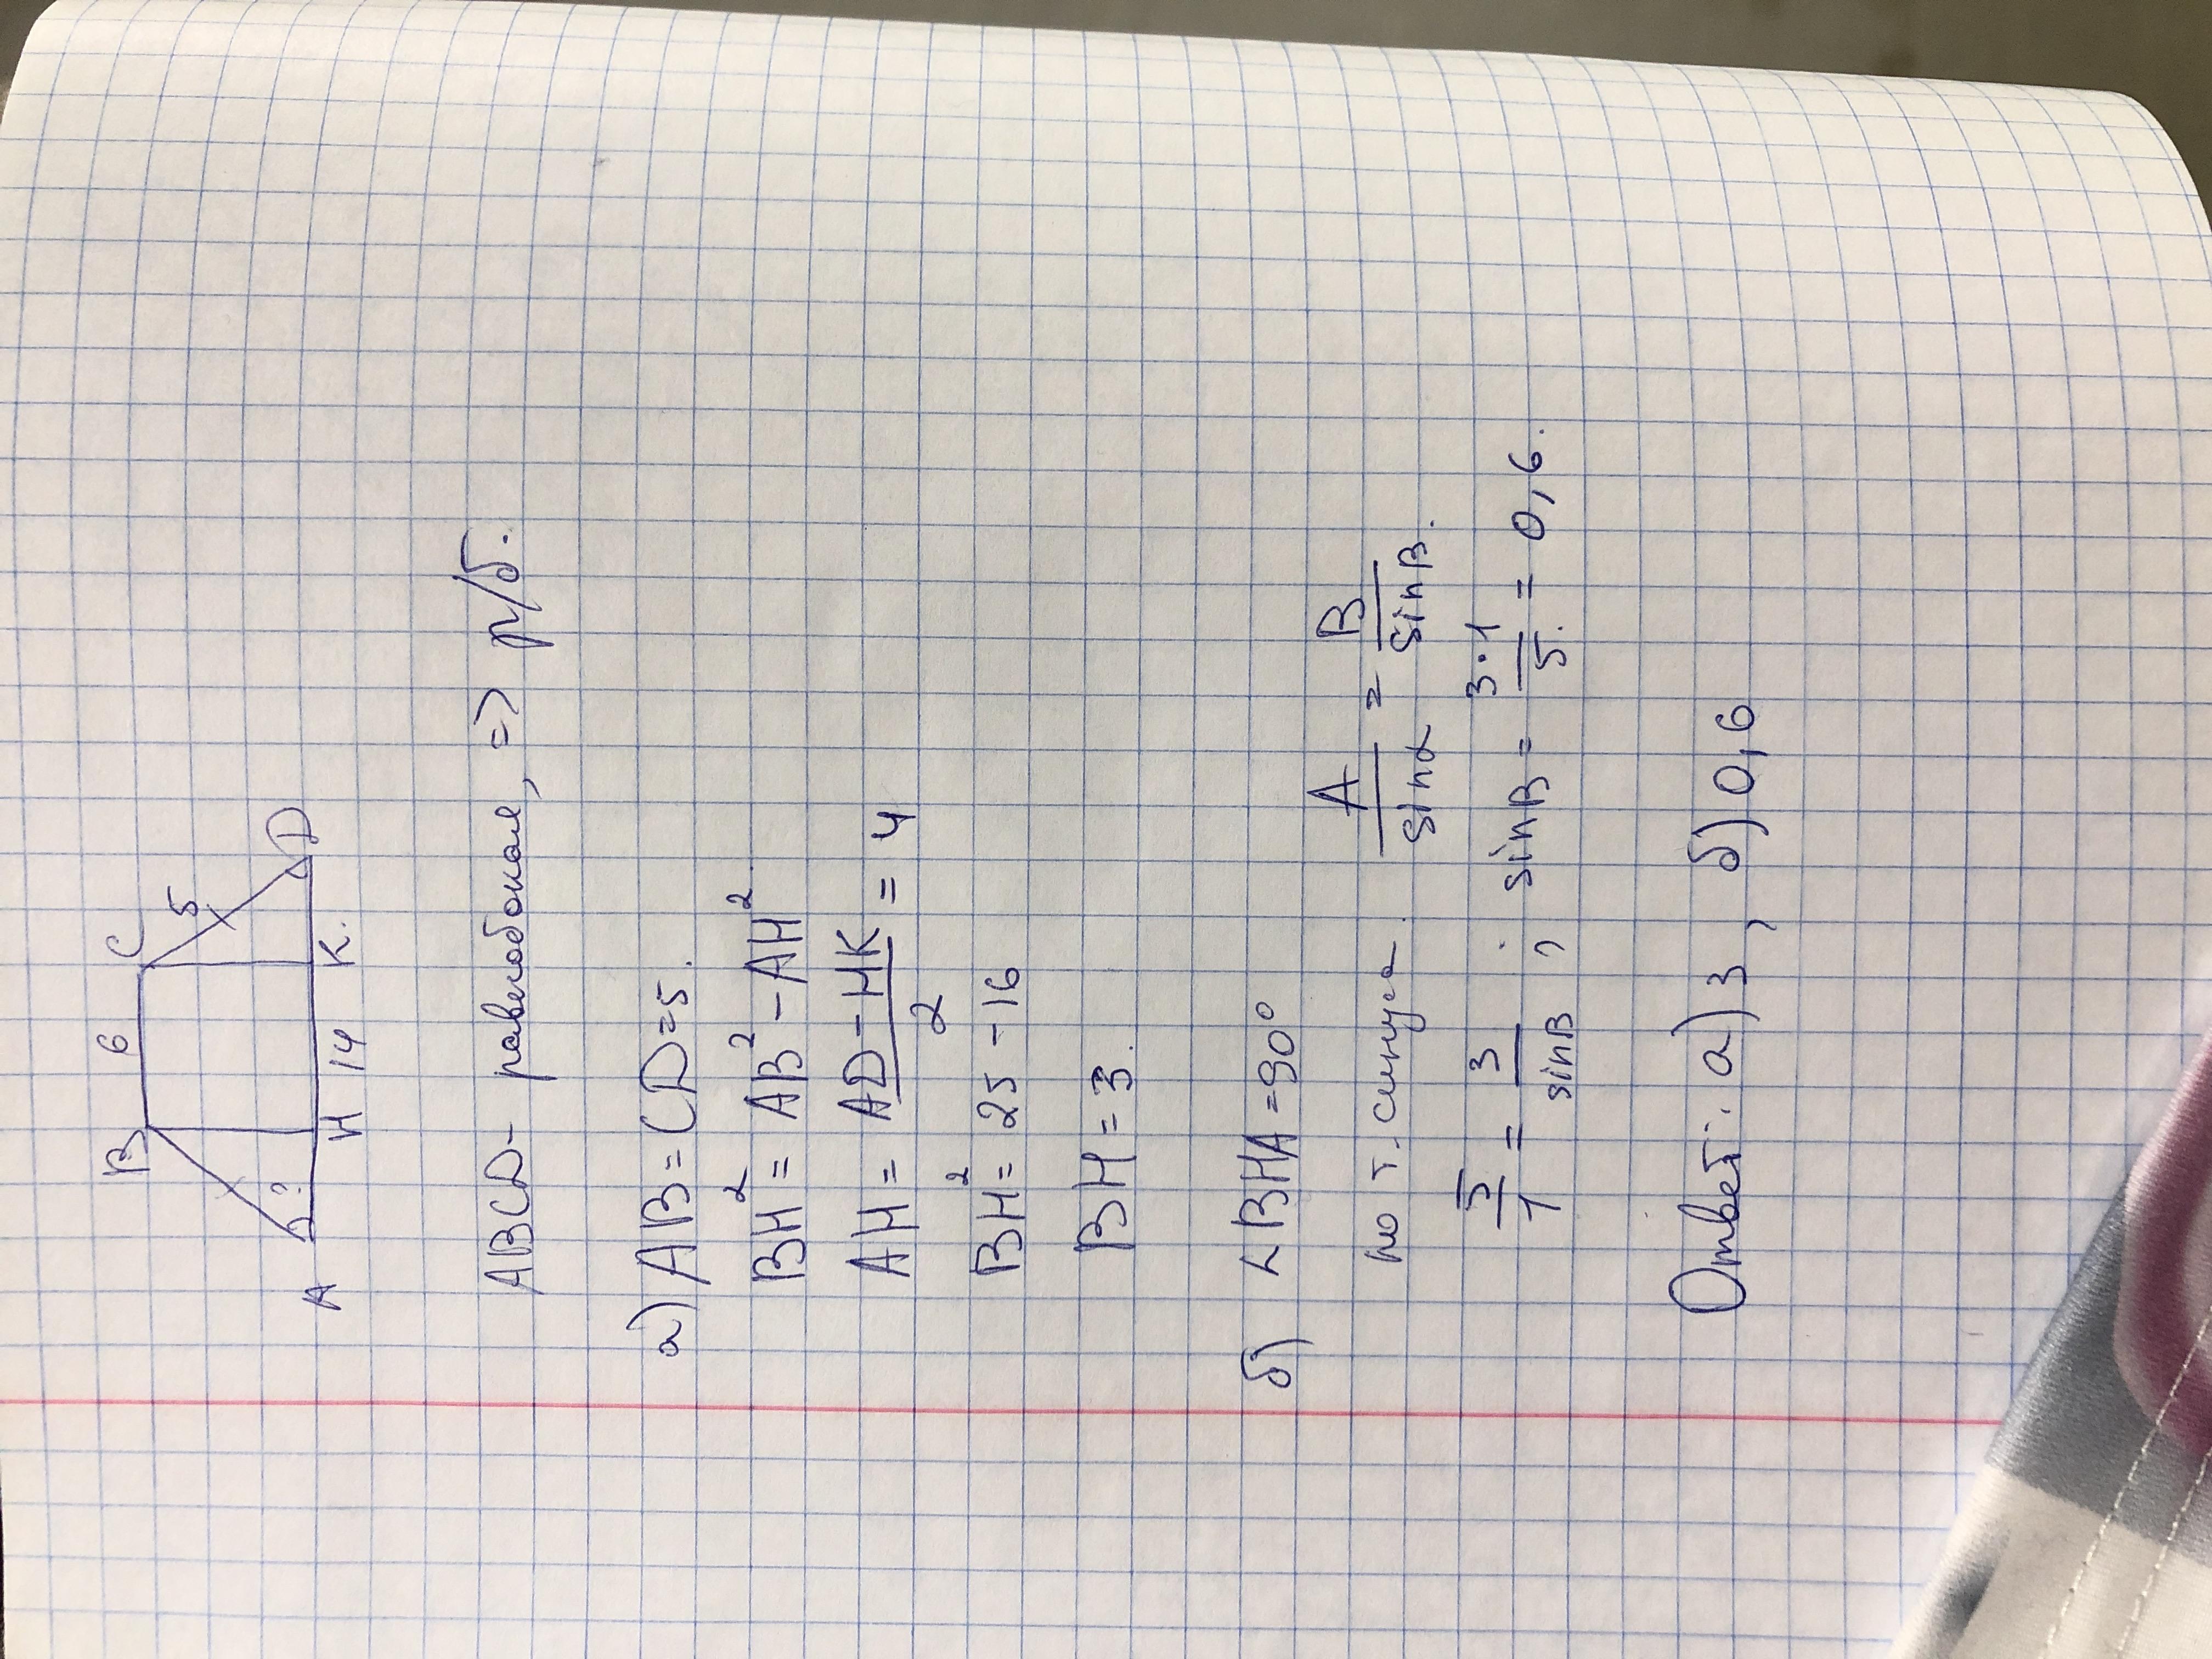 B 6 C
5
A ? H 14 K. D
ABCD - равнобокая, => р/б.
а) AB = CD = 5.
BH² = AB² - AH².
AH = \frac{AD - HK}{2} = 4
BH² = 25 - 16
BH = 3.
б) ∠BHA = 90°
по т. синуса. \frac{A}{sinα} = \frac{B}{sinB}.
\frac{5}{1} = \frac{3}{sinB} ; sinB = \frac{3·1}{5.} = 0,6.
Ответ: а) 3, б) 0,6